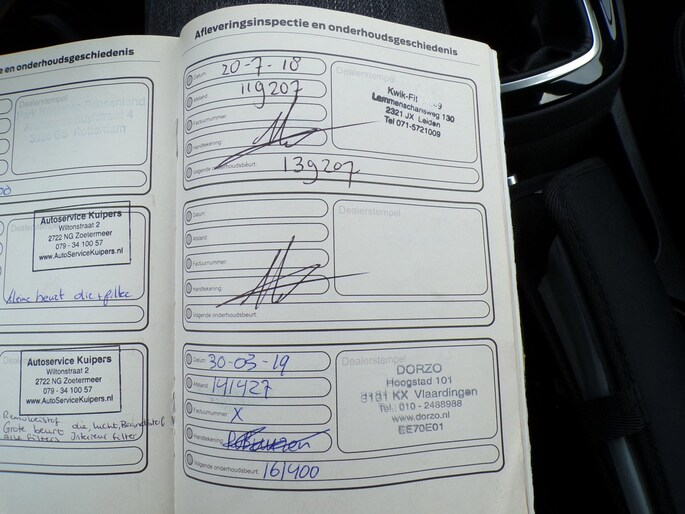 e en onderhoudsgeschiedenis
Dealerstempel
Autoservice Kuipers
Wiltonstraat 2
2722 NG Zoetermeer
079 - 34 100 57
www.AutoServiceKuipers.nl
kleine beurt olie + filter
Dealerstempel
Autoservice Kuipers
Wiltonstraat 2
2722 NG Zoetermeer
079 - 34 100 57
www.AutoserviceKuipers.nl
Remvloeistof
Grote beurt olie, lucht, Brandstof
Alle Filters Interieur filter
Afleveringsinspectie en onderhoudsgeschiedenis
Datum: 20-7-18
Afstand: 119207
Factuurnummer:
Handtekening:
Volgende onderhoudsbeurt: 139207
Dealerstempel
Kwik-Fit
Lammenschansweg 130
2321 JX Leiden
Tel 071-5721009
Datum:
Afstand:
Factuurnummer:
Handtekening:
Volgende onderhoudsbeurt:
Dealerstempel
Datum: 30-03-19
Afstand: 141427
Factuurnummer: X
Handtekening:
Volgende onderhoudsbeurt: 161400
Dealerstempel
DORZO
Hoogstad 101
3131 KX Vlaardingen
Tel. 010 - 2488988
www.dorzo.nl
EE70E01